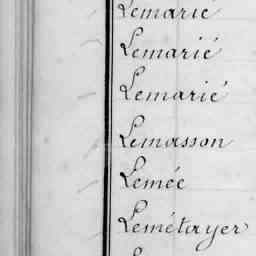 Lemarié
Lemarié
Lemarié
Lemasson
Lemée
Lemétayer